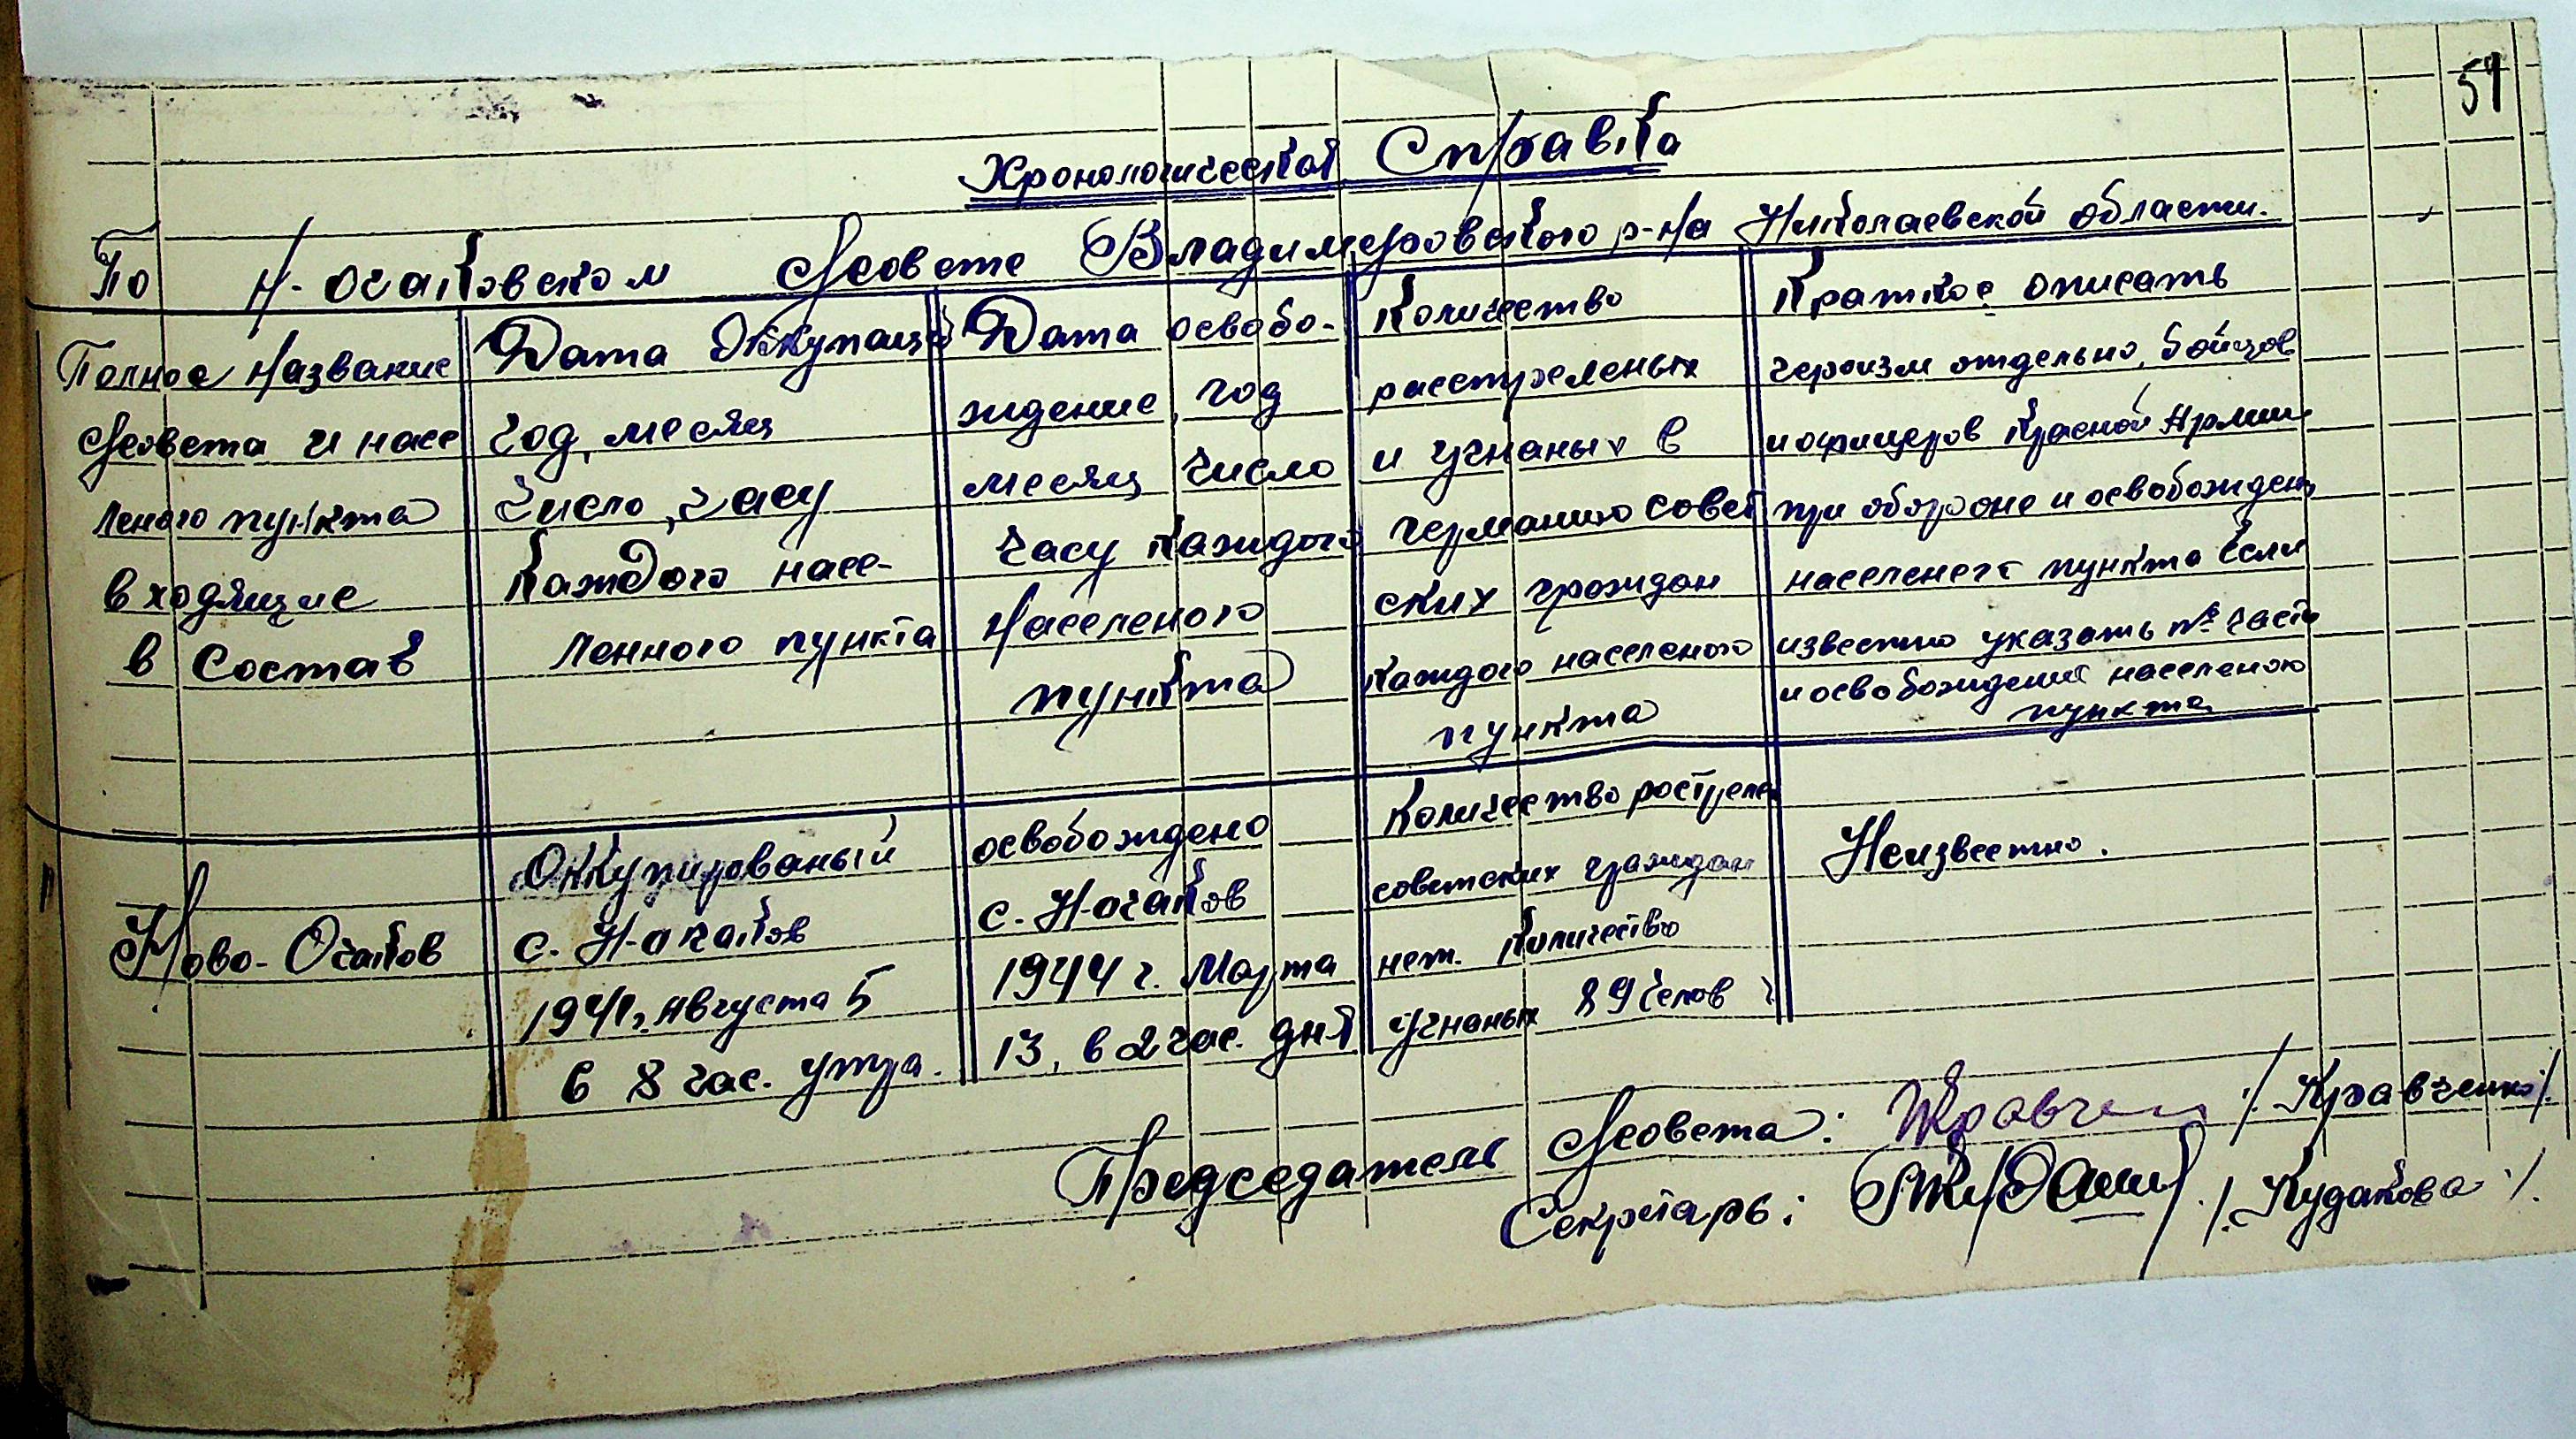 51
Хронологическая Справка
По Н-Очаковском с/совете Владимеровского р-на Николаевской области.
Полное название
с/совета и насе
леного пункта
входящие
в состав
Дата Оккупации
год, месяц
число, часу
каждого насе-
ленного пункта
Дата освобо-
ждение, год
месяц число
часу каждого
населеного
пункта
Количество
расстреленых
и угнаных в
германию совет
ских граждан
каждого населеного
пункта
Краткое описать
героизм отдельно, бойцов
и офицеров Красной Армии
при обороне и освобожден
населеного пункта если
известно указать № части
и освобождение населеного
пункта
Ново-Очаков
Оккупированый
с. Н-очаков
1941 г. августа 5
в 8 час. утра.
освобождено
с. Н-очаков
1944 г. Марта
13, в 2 час. дня
Количество ростреле
советских граждан
нет. Количество
угнаных 89 челов
Неизвестно.
Председатель с/совета: Кравчен /. Кравченко /.
Секретарь: /. Кудакова /.